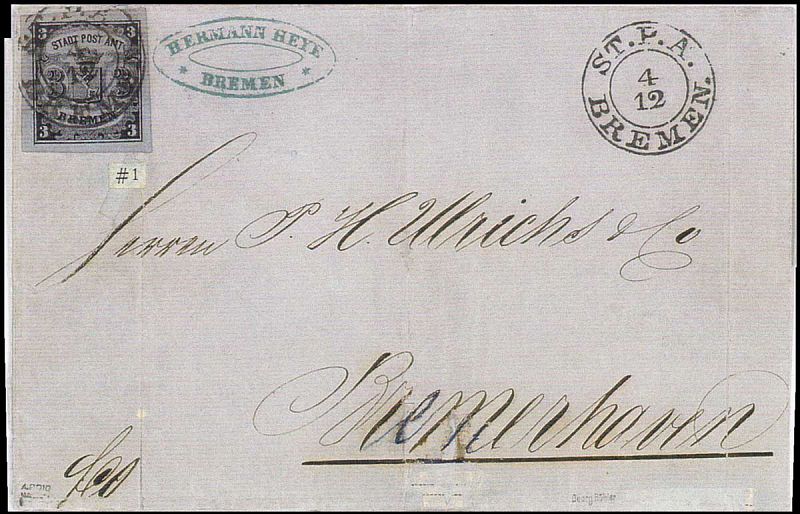 STADT POST AMT
BREMEN
3 3
HERMANN HEYE
* BREMEN *
ST. P. A.
4
12
BREMEN.
#1
Herren P. H. Ulrichs & Co
Bremerhaven
Georg Bühler